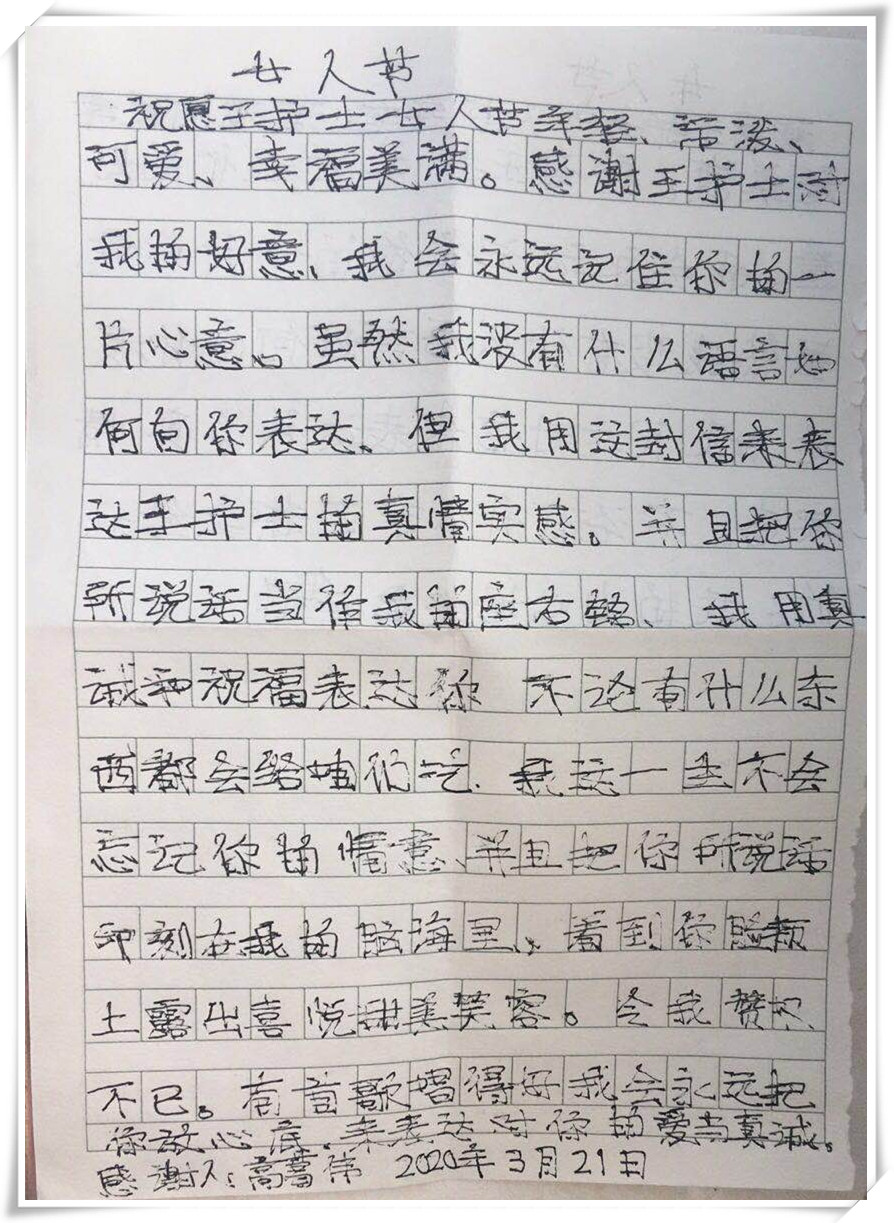 女人节
祝愿王护士女人节年轻、活泼、
可爱、幸福美满。感谢王护士对
我的好意、我会永远记住你的一
片心意。虽然我没有什么语言如
何向你表达、但我用这封信来表
达王护士的真情实感。并且把你
所说话当作我的座右铭、我用真
诚和祝福表达你 不论有什么东
西都会给咱们吃、我这一生不会
忘记你的情意、并且把你所说话
印刻在我的脑海里,看到你脸颊
上露出喜悦甜美笑容。令我赞叹
不已。有首歌唱得好我会永远把
你放心底,来表达对你的爱与真诚。
感谢人:高 伟 2020年3月21日